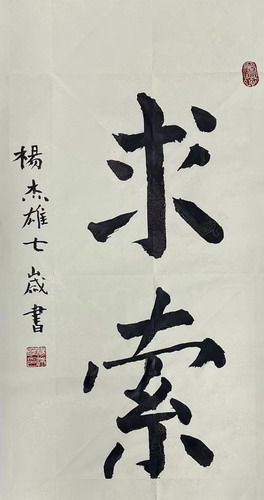 求索
楊杰雄七歲書